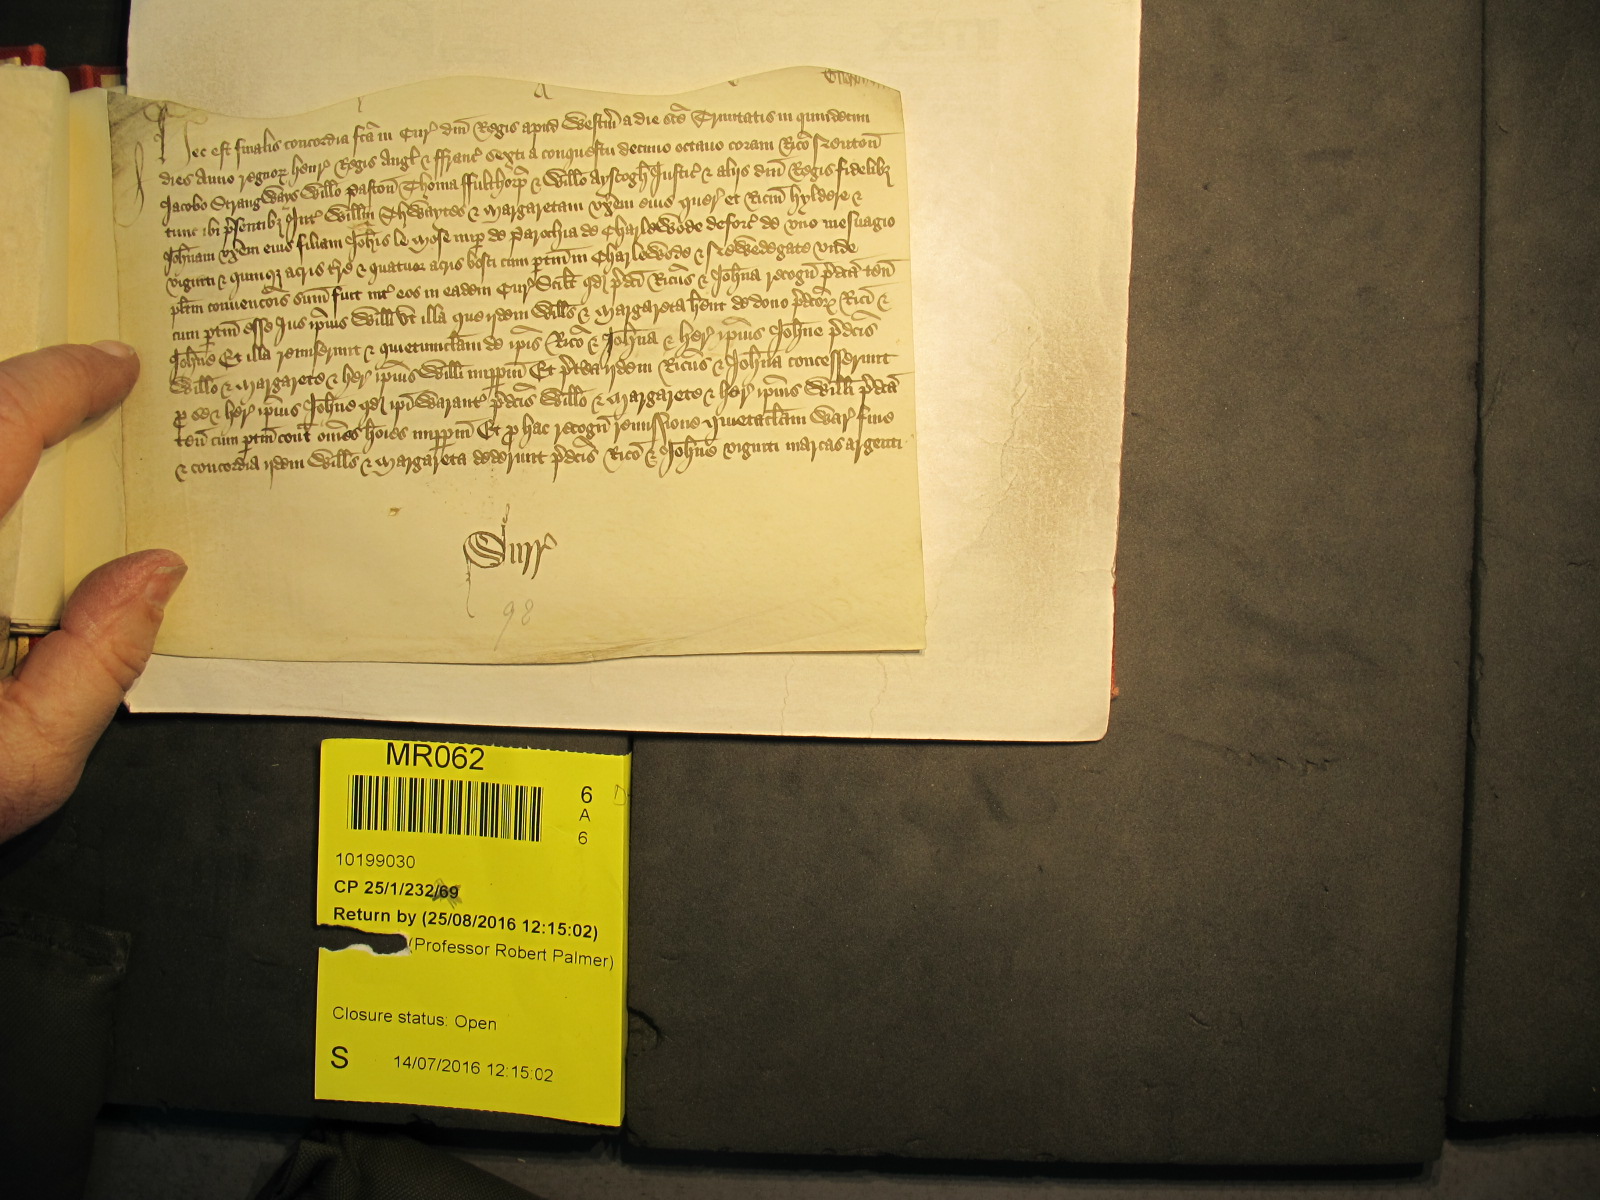 Hec est finalis concordia fc̃a in Cur̃ dñi Regis apud Westm̃ a die sc̃e Trinitatis in quindecim
dies Anno regnoꝝ Henr̃ Regis Angł ⁊ ffranc̃ sexti a conquestu decimo octavo coram Rico
Jacobo Strangways Willo Paston Thoma ffulthorp̃ ⁊ Willo Ayscogh Justic̃ ⁊ alijs dñi Regis fidelibꝫ
tunc ibi p̃sentibꝫ Int̃ Willm̃ Thwaytes ⁊ Margaretam vx̃em eius quer̃ et Ricm̃ Hyldere ⁊
Joħnam vx̃em eius filiam Joħis le Mose de parochia de Charlewode deforc̃ de vno mesuagio
viginti ⁊ quinqꝫ acris tr̃e ⁊ quatuor acris bosci cum ptiñ in Charlewode ⁊ vnde
pl̃itm convenc̃ois sum̃ fuit int̃ eos in eadem Cur̃ Scilt̃ qd̃ p̃dc̃i Ricũs ⁊ Joħna recogñ p̃dc̃a teñ
cum ptiñ esse Jus ip̃ius Willi vt illa que ijdem Wills ⁊ Margareta h̃ent de dono p̃dc̃oꝝ Rici ⁊
Joħne Et illa remiserunt ⁊ quietumclam̃ de ip̃is Rico ⁊ Joħna ⁊ her̃ ip̃ius Joħne p̃dc̃is
Willo ⁊ Margarete ⁊ her̃ ip̃ius Willi imppm̃ Et p̃terea ijdem Ricũs ⁊ Joħna concesserunt
ꝓ se ⁊ her̃ ip̃ius Joħne qd̃ ip̃i warant̃ p̃dc̃is Willo ⁊ Margarete ⁊ her̃ ip̃ius Willi p̃dc̃a
teñ cum ptiñ cont̃ om̃es hoĩes imppm̃ Et ꝓ hac recogñ remissione quietaclam̃ War̃ fine
⁊ concordia ijdem Wills ⁊ Margareta dederunt p̃dc̃is Rico ⁊ Joħne viginti marcas argenti
Surr̃
98
MR062
6
A
6
10199030
CP 25/1/232/69
Return by (25/08/2016 12:15:02)
(Professor Robert Palmer)
Closure status: Open
S 14/07/2016 12:15:02